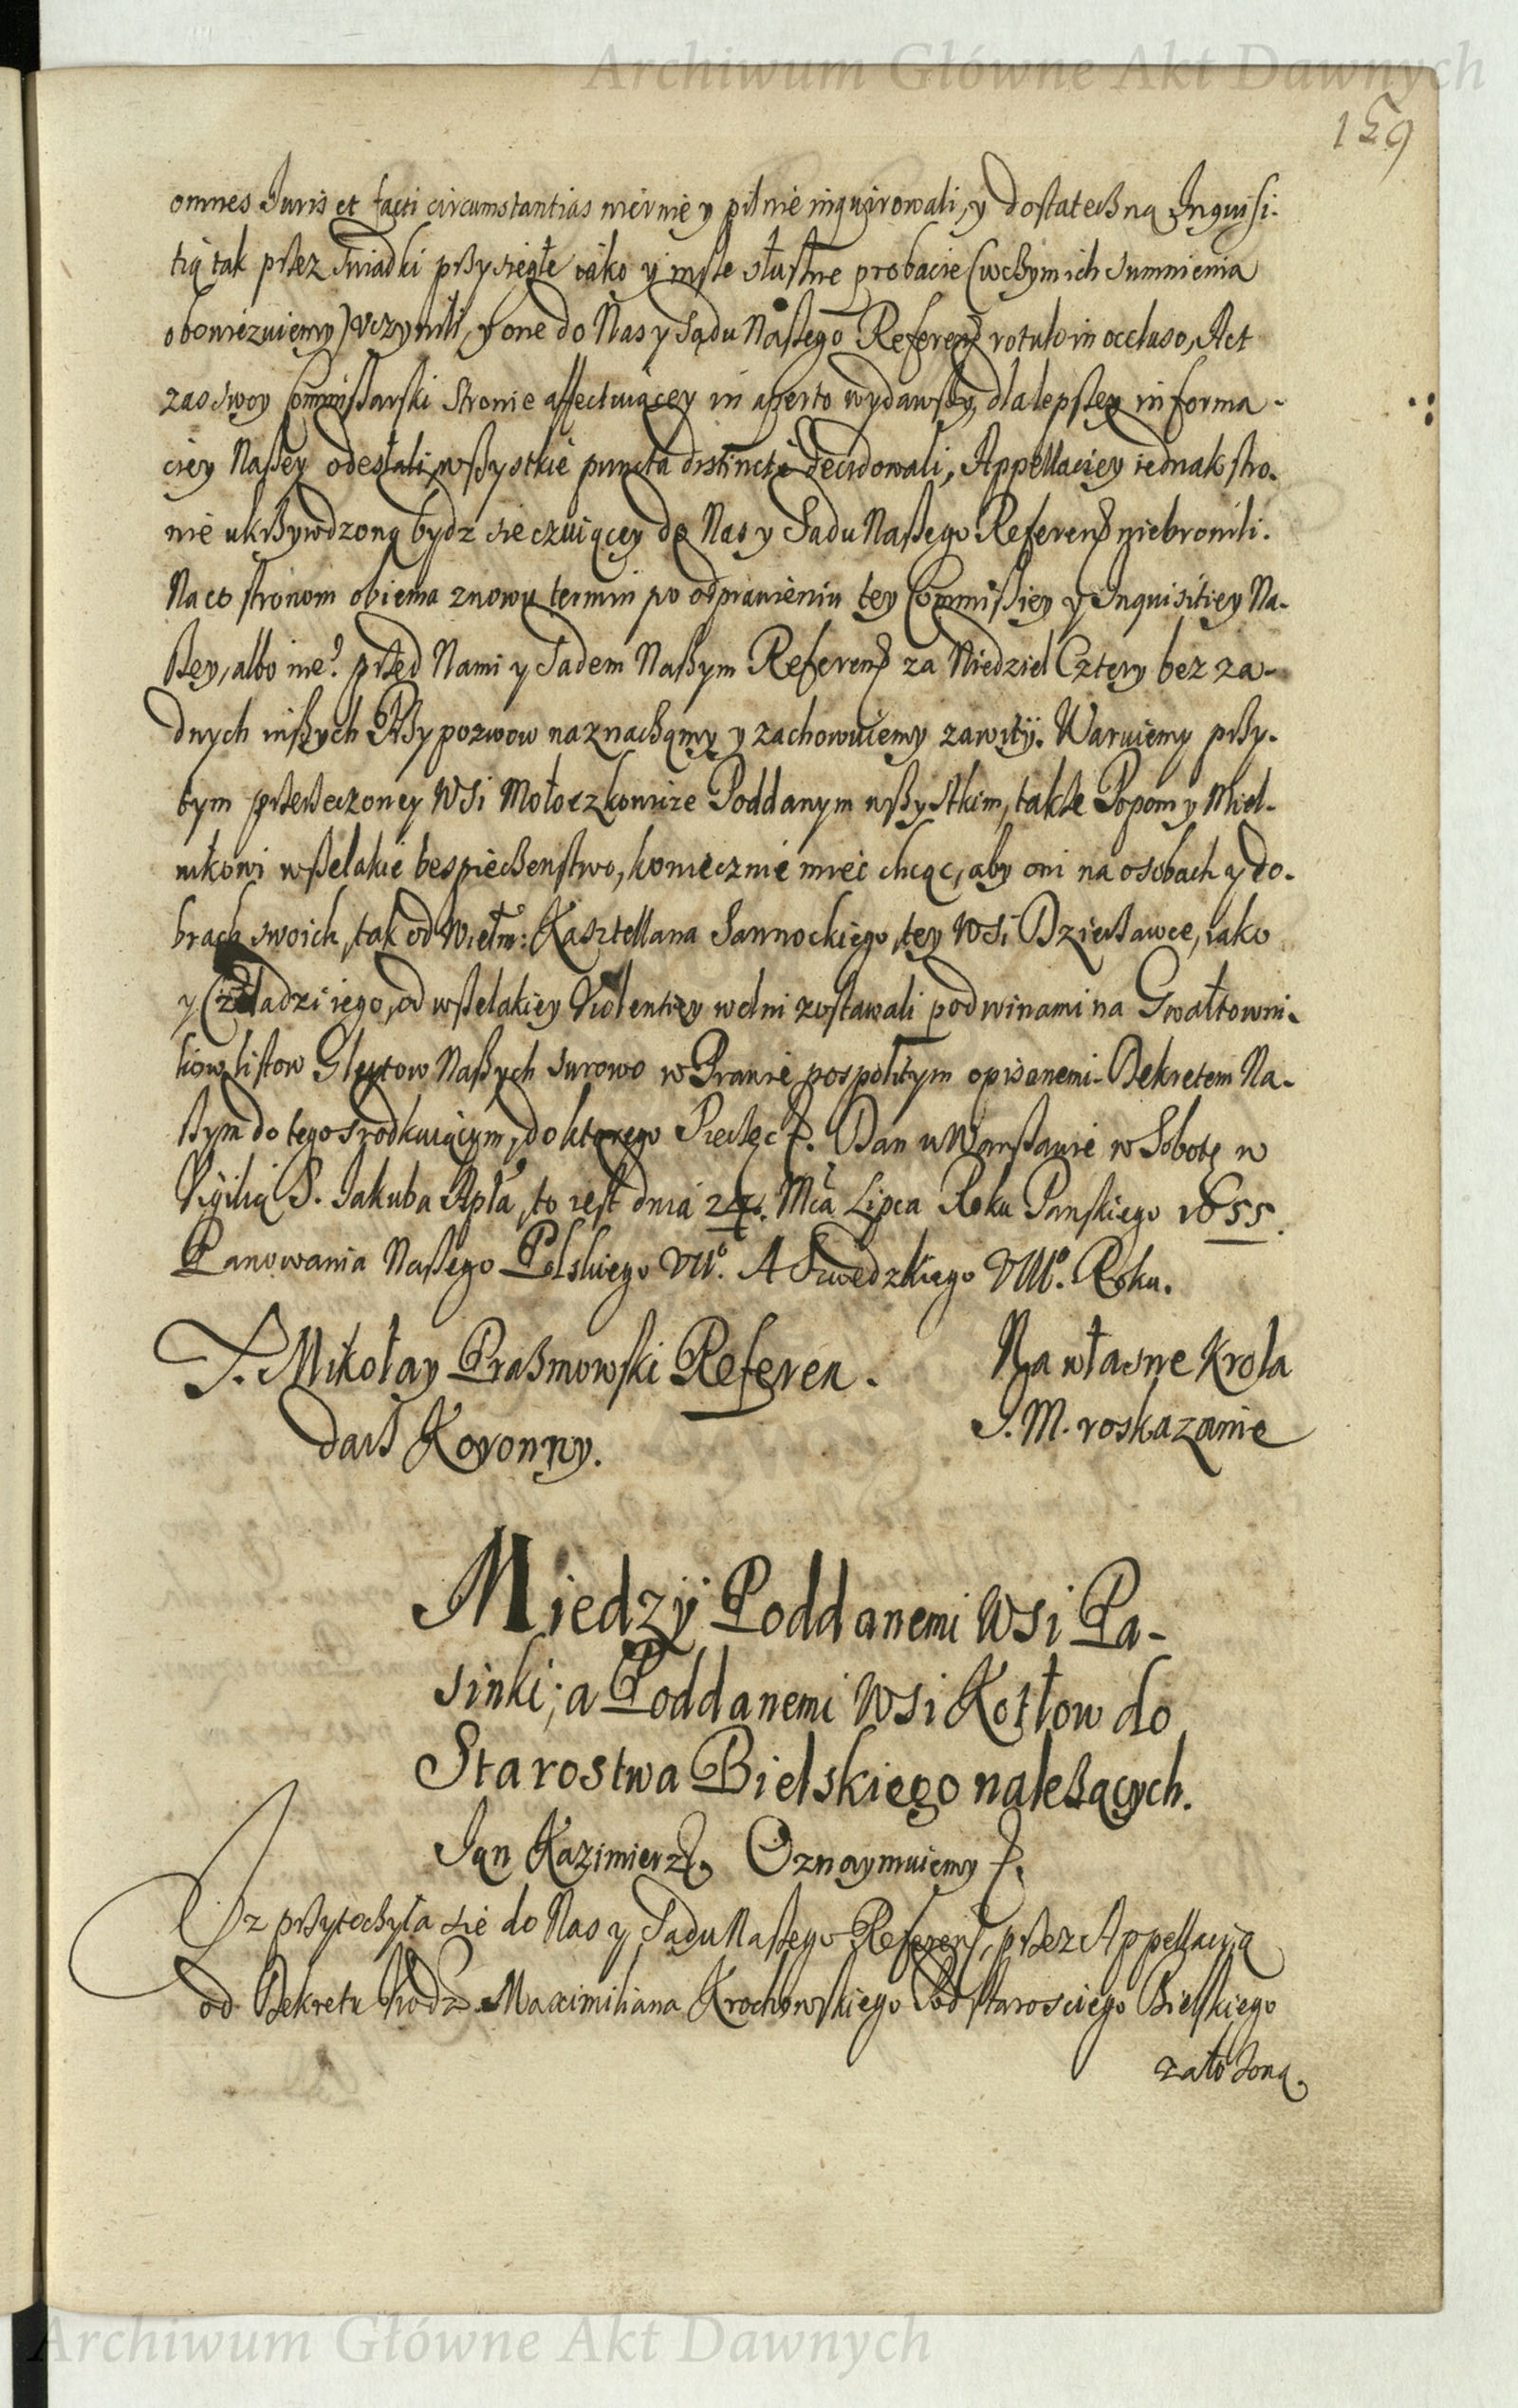 Archiwum Główne Akt Dawnych
159
omnes Juris et facti circumstantias miernie y pilnie inquirowali, y dostateczną Inquisi-
tią tak przez swiadki przysięgłe iako y insze słuszne probacie (w czym ich sumnienia
obowięzuiemy) vczynili, y one do Nas y Sądu Naszego Referen rotulo in occluso, Act
zas swoy Commissarski stronie affectuiącey in aperto wydawszy, dla lepszey informa-
ciey Naszey odesłali, wszystkie puncta distincte decidowali, Appellaciey iednak stro-
nie ukrzywdzoną bydz się czuiącey do Nas y Sądu Naszego Referen niebronili.
Na co stronom obiema znowu termin po odprawieniu tey Commissiey y Inquisitiey Na-
szey, albo nie? przed Nami y Sądem Naszym Referen za Niedziel Cztery bez za-
dnych inszych Przypozwow naznaczamy y zachowuiemy zawity. Waruiemy przy-
tym przerzeczoney Wsi Mołoczkowice Poddanym wszystkim, także Popom y Miel-
nikowi wszelakie bespieczenstwo, koniecznie mieć chcąc, aby oni na osobach y do-
brach swoich, tak od Wielm: Kasztellana Sannockiego, tey Wsi Dzierżawce, iako
y Czeladzi iego, od wszelakiey Violentiey wolni zostawali pod winami na Gwałtowni-
kow listow Gleytow Naszych surowo w Prawie pospolitym opisanemi. Dekretem Na-
szym do tego srodkuiącym, do ktorego Pieczęć. Dan w Warszawie w Sobotę w
Vigilią S. Jakuba Apła, to iest dnia 24. Mca Lipca Roku Panskiego 1655.
Panowania Naszego Polskiego VII°. A Szwedzkiego VIII°. Roku.
X. Mikołay Prażmowski Referen-
darz Koronny.
Na własne Krola
J. M. roskazanie
Miedzÿ Poddanemi Wsi Pa-
sinki; a Poddanemi Wsi Kozłow do
Starostwa Bielskiego należących.
Jan Kazimierz. Oznaymuiemy
Iz przytoczyła się do Nas y Sądu Naszego Referen, przez Appellacią
od Dekretu Vrodz. Maximiliana Krochowskiego Podstarosciego Bielskiego
założoną.
Archiwum Główne Akt Dawnych